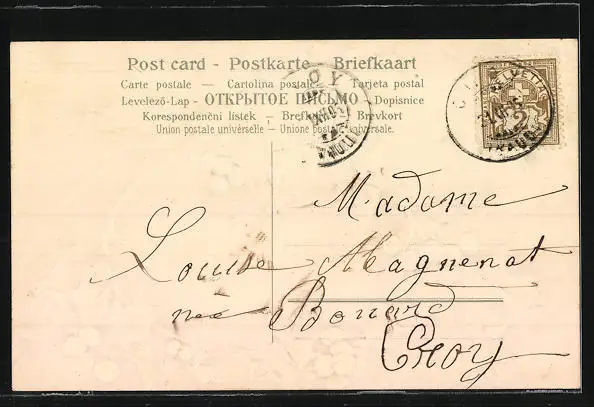 Post card - Postkarte - Briefkaart
Carte postale — Cartolina postale — Tarjeta postal
Levelező-Lap - ОТКРЫТОЕ ПИСЬМО - Dopisnice
Korespondenční lístek — Brefkort — Brevkort
Union postale universelle — Unione postale universale.
HELVETIA
2
Madame
Louise Magnenat
née Bonard
Croy